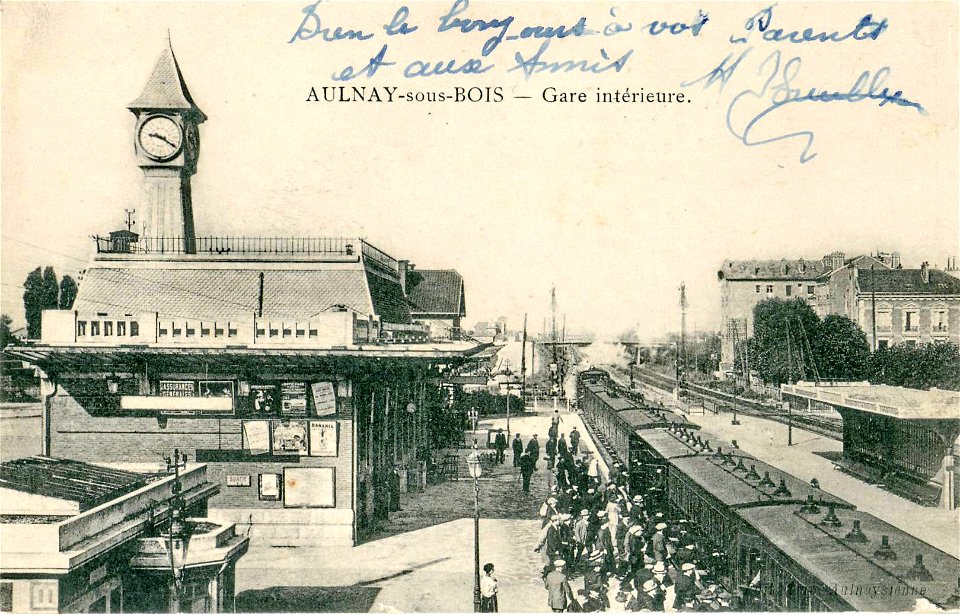 Bien le bonjour à vos Parents
et aux Amis
AULNAY-sous-BOIS — Gare intérieure.
ASSURANCES
GÉNÉRALES
BANANIA
SORTIE
Aulnaysienne